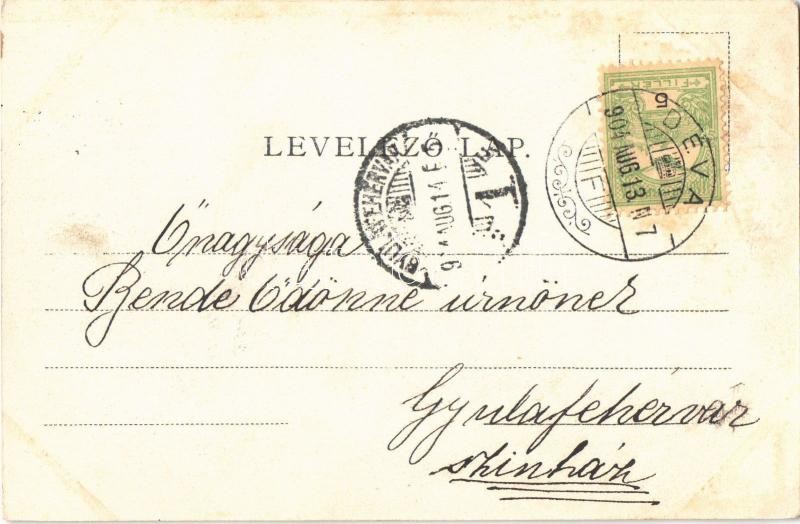 LEVELEZŐ LAP.
FILLÉR
5
DÉVA
904 AUG 13 N 7
GYULAFEHÉRVÁR
904 AUG 14
Őnagysága
Bende Ödönné úrnőnek
Gyulafehérvár
szinház